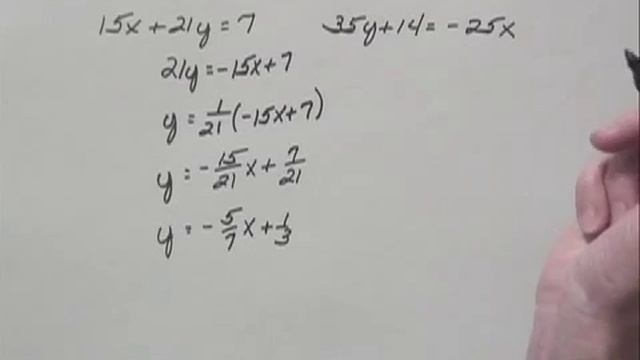 15x + 21y = 7
35y + 14 = -25x
21y = -15x + 7
y = 1/21(-15x + 7)
y = -15/21x + 7/21
y = -5/7x + 1/3